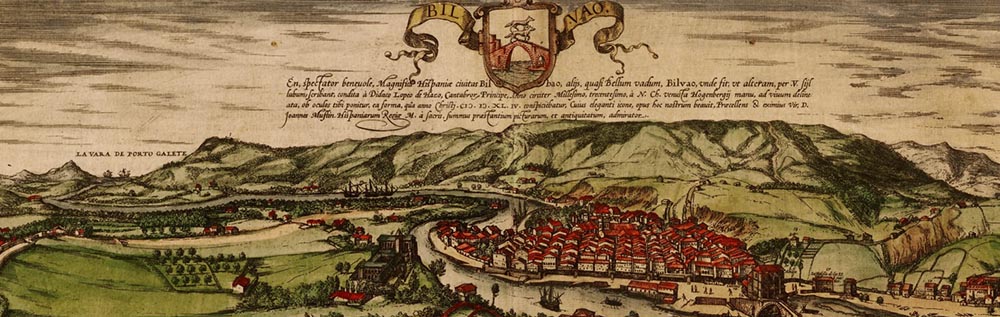 BIL VAO.
En, spectator beneuole, Magnificæ Hispaniæ ciuitas Bilbao, alijs, quasi Bellum vadum, Bilvao, vnde fit, vt alteram, per V. syl
labam scribant, condita à Didaco Lopeo de Haro, Cantabror. Principe, Anno circiter Millesimo, trecentesimo, à
ata, ob oculos tibi ponitur, ea forma, qua anno Christi, CIↃ. IↃ. XL. IV. conspiciebatur, Cuius eleganti icone, opus hoc nostrum beauit, Præcellens & eximius Vir, D.
Joannes Muflin. Hispaniarum Regiæ M. à sacris, summus præstantium picturarum, et antiquitatum, admirator.
LA VARA DE PORTO GALETE